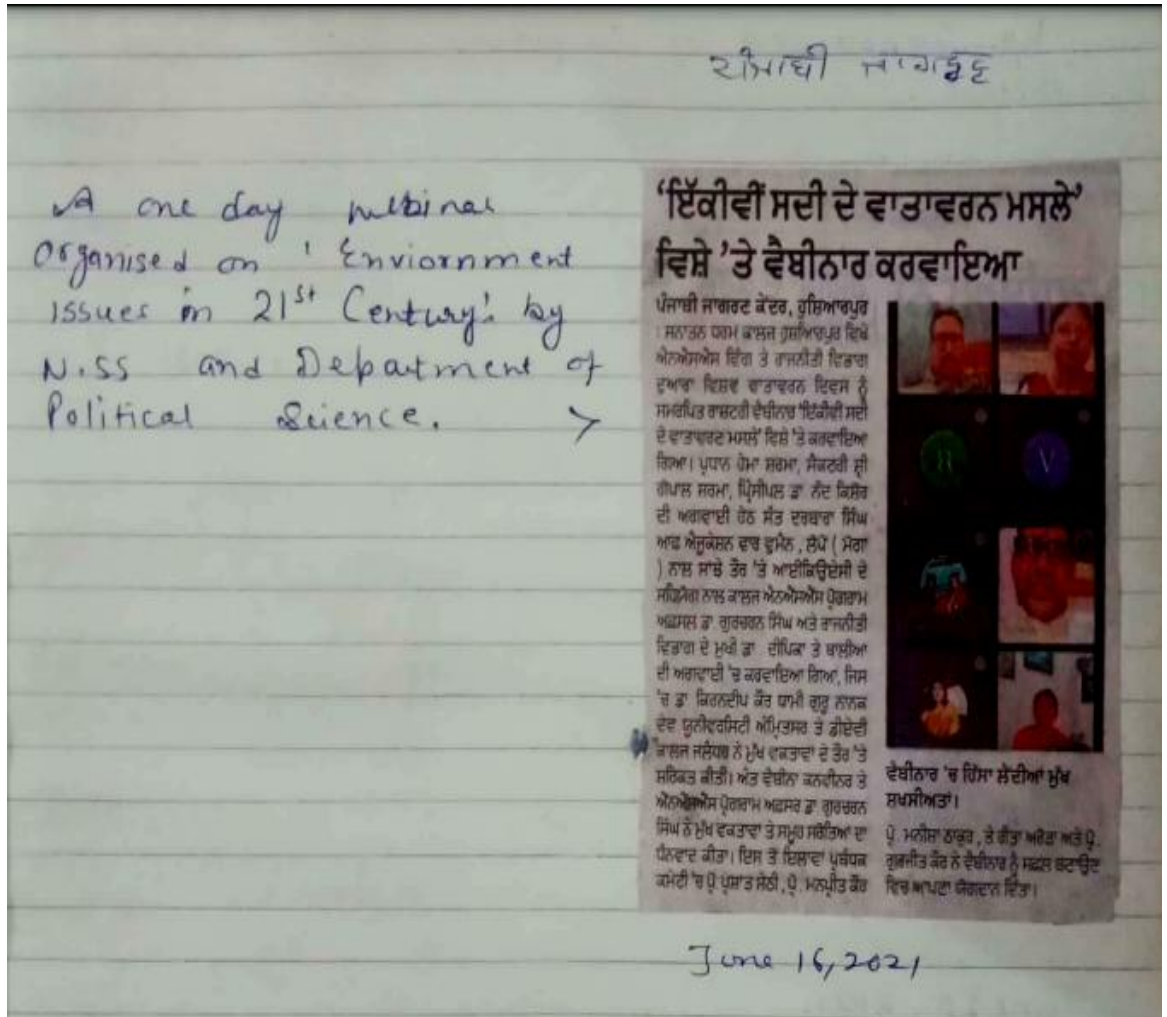 ਪੰਜਾਬੀ ਜਾਗਰਣ
A one day webinar
organised on 'Enviornment
issues in 21st Century' by
N.SS and Department of
Political Science. >
'ਇੱਕੀਵੀਂ ਸਦੀ ਦੇ ਵਾਤਾਵਰਨ ਮਸਲੇ'
ਵਿਸ਼ੇ 'ਤੇ ਵੈਬੀਨਾਰ ਕਰਵਾਇਆ
ਪੰਜਾਬੀ ਜਾਗਰਣ ਕੇਂਦਰ, ਹੁਸ਼ਿਆਰਪੁਰ
: ਸਨਾਤਨ ਧਰਮ ਕਾਲਜ ਹੁਸ਼ਿਆਰਪੁਰ ਵਿਖੇ
ਐਨਐਸਐਸ ਵਿੰਗ ਤੇ ਰਾਜਨੀਤੀ ਵਿਭਾਗ
ਦੁਆਰਾ ਵਿਸ਼ਵ ਵਾਤਾਵਰਨ ਦਿਵਸ ਨੂੰ
ਸਮਰਪਿਤ ਰਾਸ਼ਟਰੀ ਵੈਬੀਨਾਰ 'ਇੱਕੀਵੀਂ ਸਦੀ
ਦੇ ਵਾਤਾਵਰਣ ਮਸਲੇ' ਵਿਸ਼ੇ 'ਤੇ ਕਰਵਾਇਆ
ਗਿਆ। ਪ੍ਰਧਾਨ ਹੇਮਾ ਸ਼ਰਮਾ, ਸੈਕਟਰੀ ਸ਼੍ਰੀ
ਗੋਪਾਲ ਸ਼ਰਮਾ, ਪ੍ਰਿੰਸੀਪਲ ਡਾ. ਨੰਦ ਕਿਸ਼ੋਰ
ਦੀ ਅਗਵਾਈ ਹੇਠ ਸੰਤ ਦਰਬਾਰਾ ਸਿੰਘ
ਆਫ ਐਜੂਕੇਸ਼ਨ ਵਾਰ ਵੂਮੈਨ, ਲੋਪੋ ( ਮੋਗਾ
) ਨਾਲ ਸਾਂਝੇ ਤੌਰ 'ਤੇ ਆਈਕਿਊਏਸੀ ਦੇ
ਸਹਿਯੋਗ ਨਾਲ ਕਾਲਜ ਐਨਐਸਐਸ ਪ੍ਰੋਗਰਾਮ
ਅਫ਼ਸਰ ਡਾ. ਗੁਰਚਰਨ ਸਿੰਘ ਅਤੇ ਰਾਜਨੀਤੀ
ਵਿਭਾਗ ਦੇ ਮੁਖੀ ਡਾ. ਦੀਪਿਕਾ ਤੇ ਬਾਲੀਆ
ਦੀ ਅਗਵਾਈ 'ਚ ਕਰਵਾਇਆ ਗਿਆ, ਜਿਸ
'ਚ ਡਾ. ਕਿਰਨਦੀਪ ਕੌਰ ਧਾਮੀ ਗੁਰੂ ਨਾਨਕ
ਦੇਵ ਯੂਨੀਵਰਸਿਟੀ ਅੰਮ੍ਰਿਤਸਰ ਤੇ ਡੀਏਵੀ
ਕਾਲਜ ਜਲੰਧਰ ਨੇ ਮੁੱਖ ਵਕਤਾਵਾਂ ਦੇ ਤੌਰ 'ਤੇ
ਸ਼ਿਰਕਤ ਕੀਤੀ। ਅੰਤ ਵੈਬੀਨਾ ਕਨਵੀਨਰ ਤੇ
ਐਨਐਸਐਸ ਪ੍ਰੋਗਰਾਮ ਅਫ਼ਸਰ ਡਾ. ਗੁਰਚਰਨ
ਸਿੰਘ ਨੇ ਮੁੱਖ ਵਕਤਾਵਾਂ ਤੇ ਸਮੂਹ ਸਰੋਤਿਆਂ ਦਾ
ਧੰਨਵਾਦ ਕੀਤਾ। ਇਸ ਤੋਂ ਇਲਾਵਾ ਪ੍ਰਬੰਧਕ
ਕਮੇਟੀ 'ਚ ਪ੍ਰੋ. ਪ੍ਰਸ਼ਾਂਤ ਸੇਠੀ, ਪ੍ਰੋ. ਮਨਪ੍ਰੀਤ ਕੌਰ
H
V
ਵੈਬੀਨਾਰ 'ਚ ਹਿੱਸਾ ਲੈਂਦੀਆਂ ਮੁੱਖ
ਸ਼ਖਸੀਅਤਾਂ।
ਪ੍ਰੋ. ਮਨੀਸ਼ਾ ਠਾਕੁਰ, ਤੇ ਰੀਤਾ ਅਰੋੜਾ ਅਤੇ ਪ੍ਰੋ.
ਗੁਰਜੀਤ ਕੌਰ ਨੇ ਵੈਬੀਨਾਰ ਨੂੰ ਸਫ਼ਲ ਬਣਾਉਣ
ਵਿਚ ਆਪਣਾ ਯੋਗਦਾਨ ਦਿੱਤਾ।
June 16, 2021